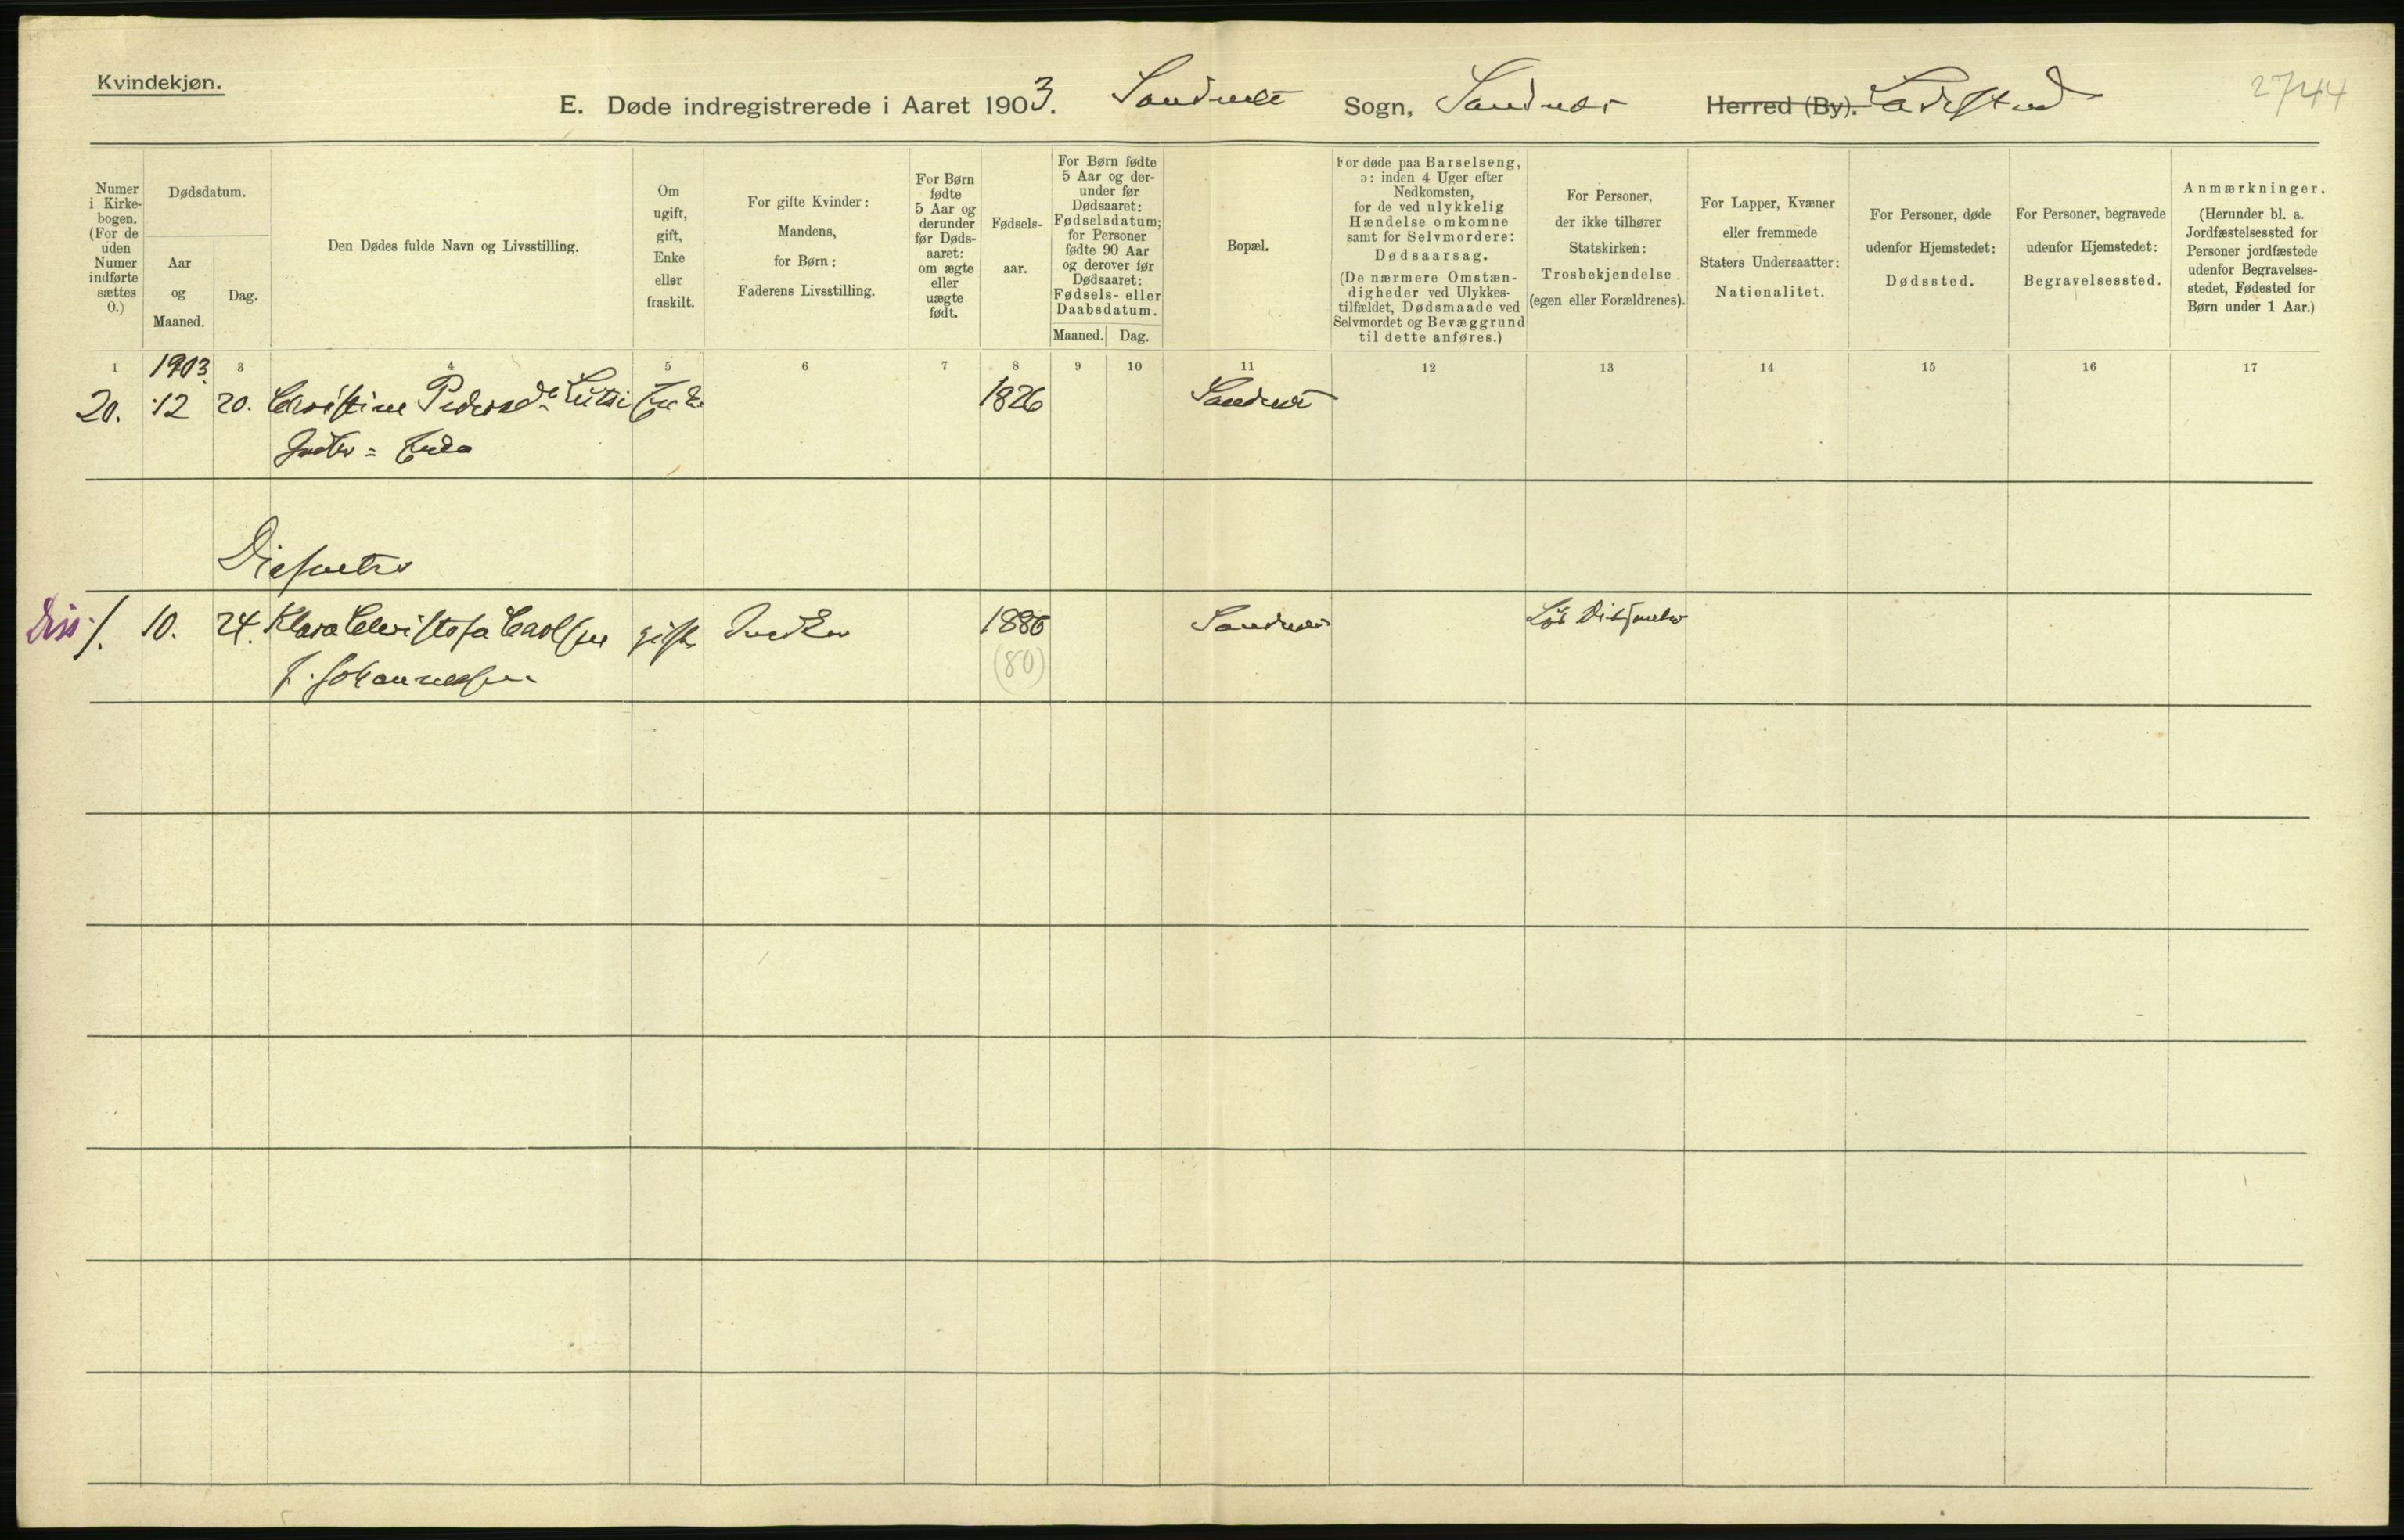 Kvindekjøn.
E. Døde indregistrerede i Aaret 1903. Sandnes Sogn, Sandnes Herred (By). Ladested
2744
Numer i Kirkebogen. (For de uden Numer indførte sættes 0.)
Dødsdatum.
Aar og Maaned.
Dag.
Den Dødes fulde Navn og Livsstilling.
Om ugift, gift, Enke eller fraskilt.
For gifte Kvinder: Mandens, for Børn: Faderens Livsstilling.
For Børn fødte 5 Aar og derunder før Dødsaaret: om ægte eller uægte født.
Fødselsaar.
For Børn fødte 5 Aar og derunder før Dødsaaret: Fødselsdatum; for Personer fødte 90 Aar og derover før Dødsaaret: Fødsels- eller Daabsdatum.
Maaned. Dag.
Bopæl.
For døde paa Barselseng, ɔ: inden 4 Uger efter Nedkomsten, for de ved ulykkelig Hændelse omkomne samt for Selvmordere: Dødsaarsag. (De nærmere Omstændigheder ved Ulykkestilfældet, Dødsmaade ved Selvmordet og Bevæggrund til dette anføres.)
For Personer, der ikke tilhører Statskirken: Trosbekjendelse (egen eller Forældrenes).
For Lapper, Kvæner eller fremmede Staters Undersaatter: Nationalitet.
For Personer, døde udenfor Hjemstedet: Dødssted.
For Personer, begravede udenfor Hjemstedet: Begravelsessted.
Anmærkninger. (Herunder bl. a. Jordfæstelsessted for Personer jordfæstede udenfor Begravelsesstedet, Fødested for Børn under 1 Aar.)
1 1903. 3 4 5 6 7 8 9 10 11 12 13 14 15 16 17
20. 12 20. Christine Pedersd. Enke 1826 Sandnes
Disenter
Diss 1. 10. 24. Klara Christofa Carlsen gift 1880 Sandnes Disenter
f. Johannessen (80)